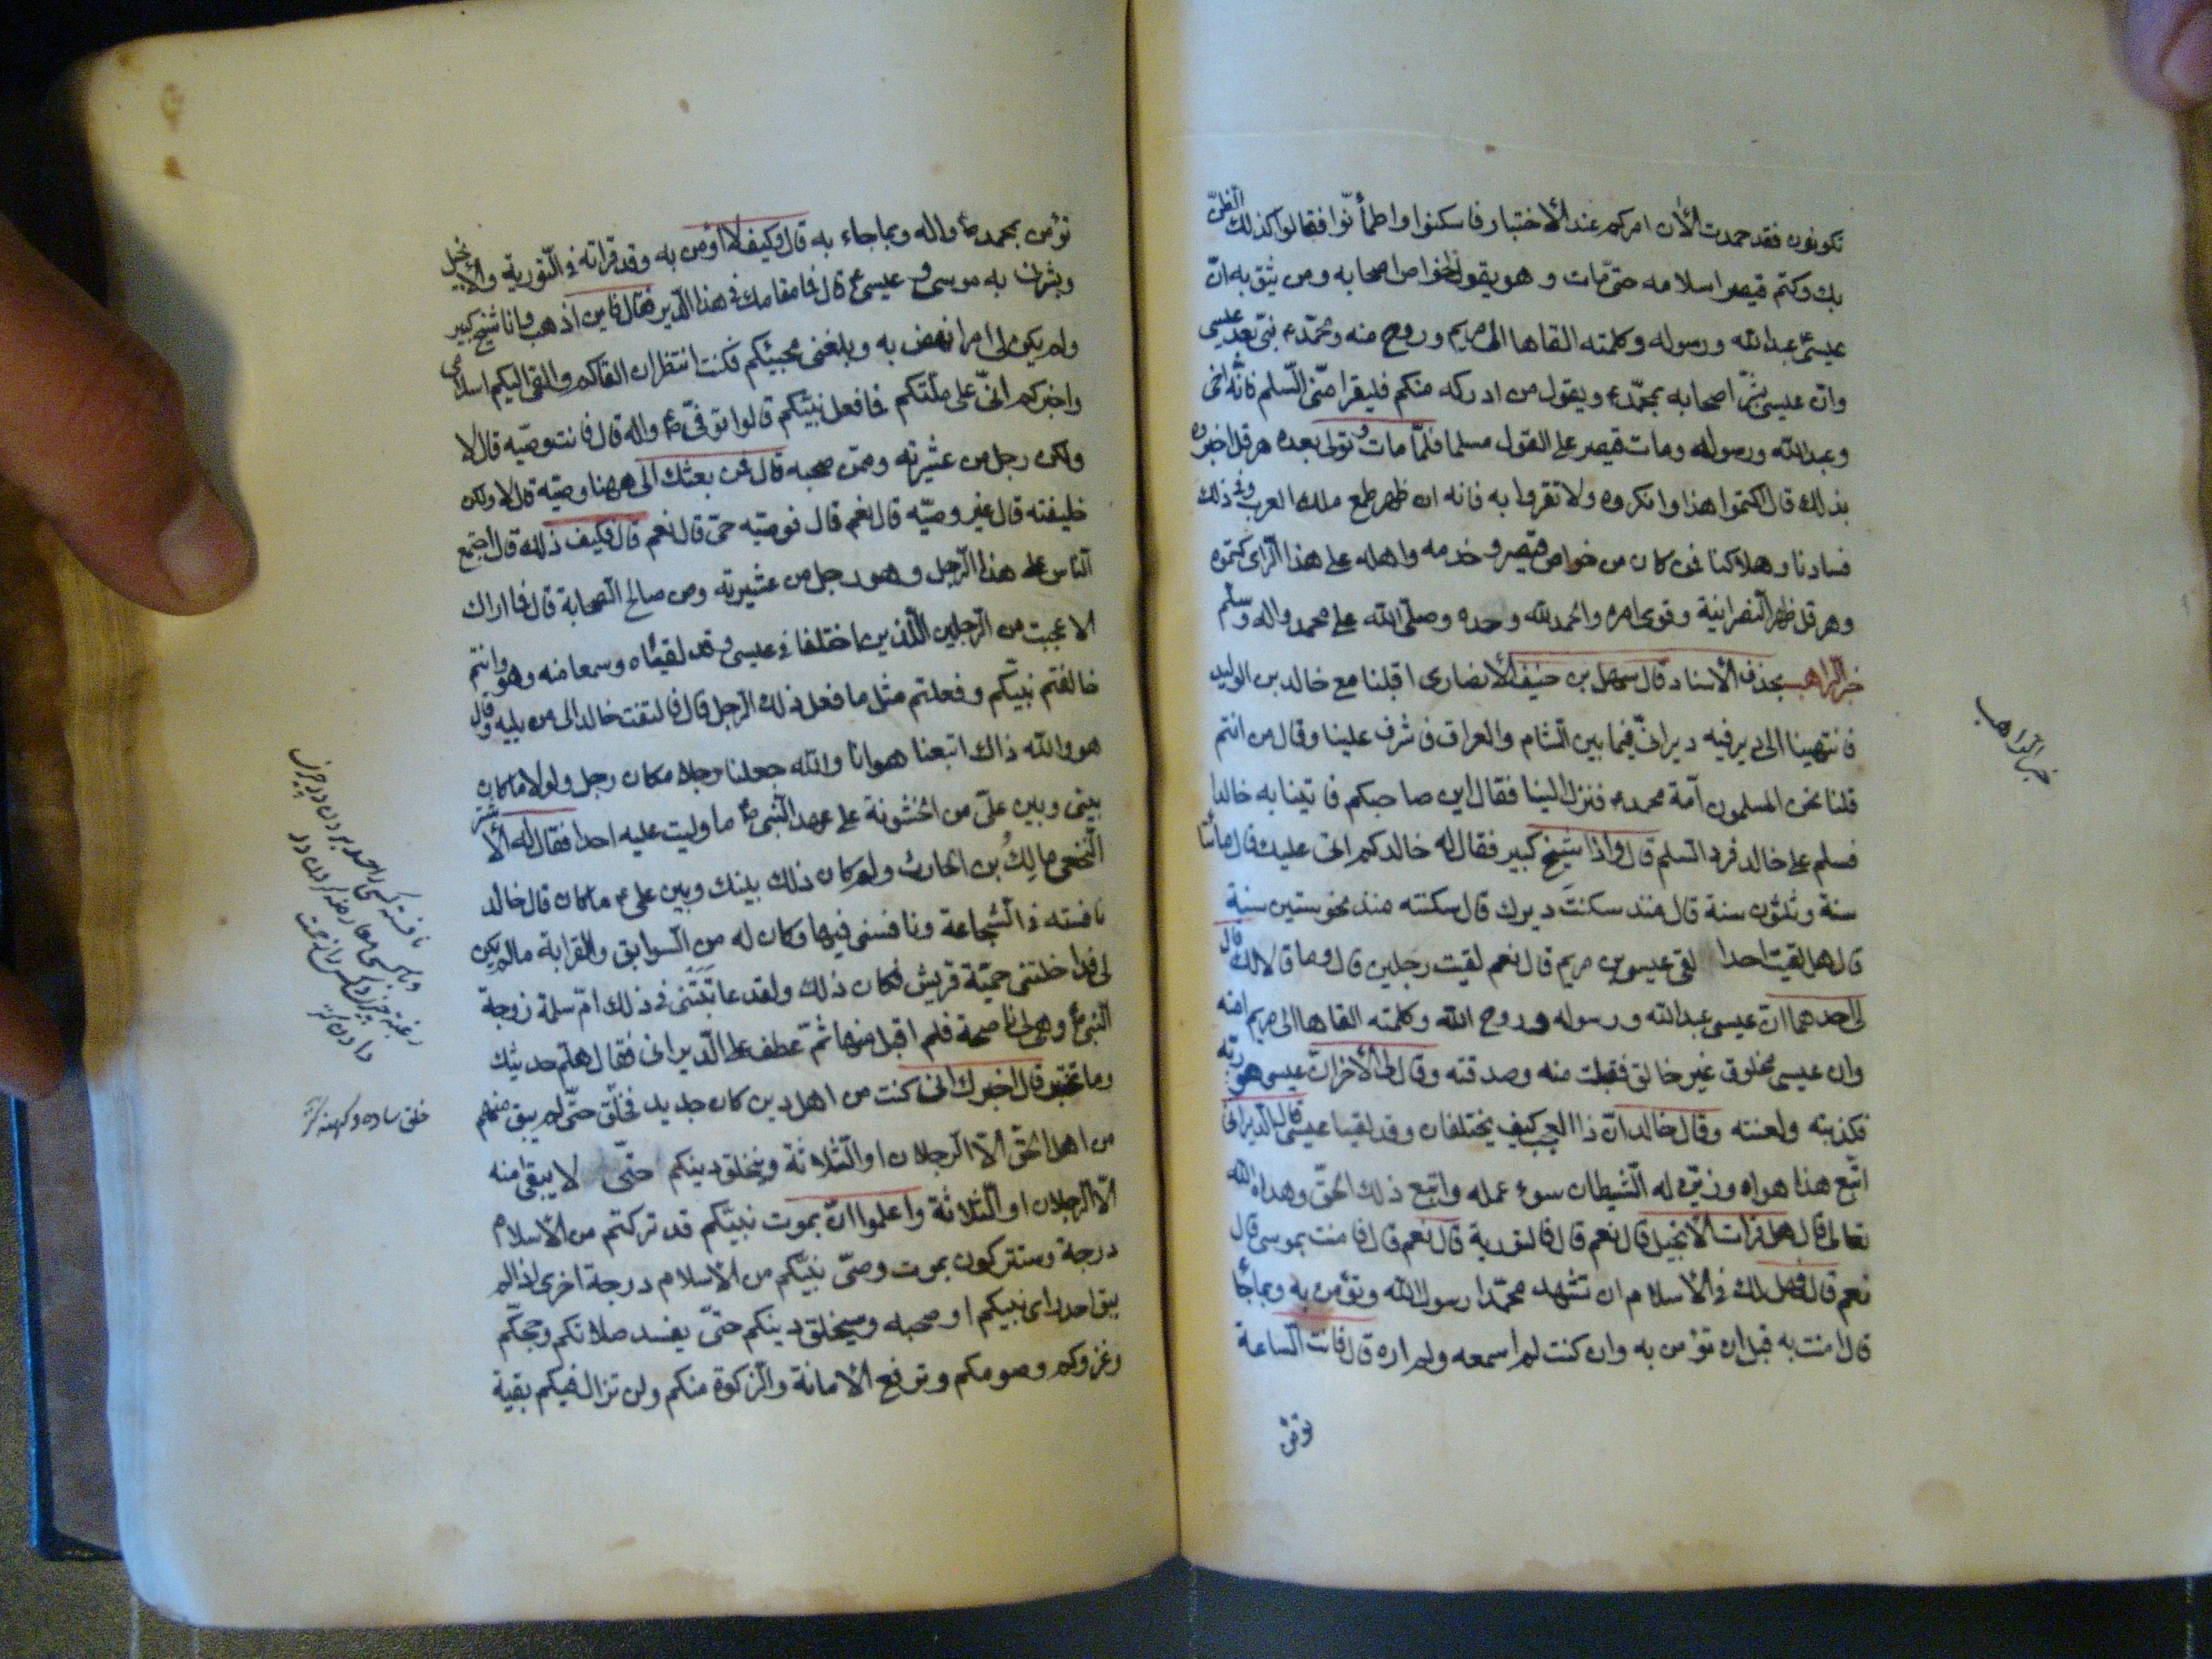 تكونون فقد حمدت الأن امركم عند الأختبار فاسكنوا واطمأنّوا فقالوا كذلك الظنّ
بك وكتم قيصر اسلامه حتى مات و هو يقول لخواص اصحابه ومن يثق به انّ
عيسىٰ عبد الله ورسوله وكلمته القاها الى مريم وروح منه ومحمّد ع نبى بعد عيسى
وانّ عيسى بشّر اصحابه بمحمّد ع ويقول من ادركه منكم فليقرا منّى السّلم فانّه اخى
وعبد الله ورسوله ومات قيصر على القول مسلما فلمّا مات و تولى بعده هرقل اخبروه
بذلك قال اكتموا هذا وانكروه ولا تقروا به فانه ان ظهر طمع ملك العرب وفى ذلك
فسادنا وهلاكنا فمن كان من خواص قيصر و خدمه واهله على هذا الرأى كتموه
وهرقل ظهر النصرانية وقوى امره والحمد لله وحده وصلّى الله على محمد واله وسلّم
خبر الراهب بحذف الأسناد قال سهل بن حنيف الأنصارى اقبلنا مع خالد بن الوليد
فانتهينا الى دير فيه ديرانىّ فيما بين الشام والعراق فاشرف علينا وقال من انتم
قلنا نحن المسلمون امّة محمد ع فنزل الينا فقال اين صاحبكم فاتينا به خالدا
فسلم على خالد فرد السلم قال واذا شيخ كبير فقال له خالد كم اتى عليك قال مائتا
سنة وثلثون سنة قال منذ سكنتَ ديرك قال سكنته منذ نحو ستين سنة
قال هل لقيت احدا لقى عيسى بن مريم قال نعم لقيت رجلين قال وما قالا لك قال
لى احدهما ان عيسى عبد الله ورسوله وروح الله وكلمته القاها الى مريم امته
وان عيسى مخلوق غير خالق فقبلت منه وصدقته وقال لى الأخر ان عيسى هو ربّه
فكذبته ولعنته وقال خالد انّ ذا العجب كيف يختلفان وقد لقيا عيسى قال الديرانى
اتّبع هذا هواه وزيّن له الشيطان سوء عمله واتبع ذلك الحقّ وهداه الله
تعالى قال هل قرات الأنجيل قال نعم قال فالتورية قال نعم قال فامنت بموسى قال
نعم قال فهل لك فى الأسلام ان تشهد محمّدا رسول الله وتؤمن به وبما جأ
قال امنت به قبل ان تؤمن به وان كنت لم اسمعه ولم اره قال فانت الساعة
تؤمن
خبر الراهب
تؤمن بمحمد ص واله وبما جاء به قال وكيف لا اؤمن به وقد قراته فى التّورية والأنجيل
وبشرنى به موسى و عيسى ع قال فما مقامك فى هذا الدّير فقال فاين اذهب وانا شيخ كبير
ولم يكن لى امر انهض به وبلغنى مجيئكم فكنت انتظر ان القاكم والقى اليكم اسلامى
واخبركم انىّ على ملّتكم فما فعل نبيّكم قالوا توفّى ص واله قال فانت وصيّه قال لا
ولكن رجل من عشيرته وممّن صحبه قال فمن بعثك الى ههنا وصيّه قال لا ولكن
خليفته قال غير وصيّه قال نعم قال فوصيّه حىّ قال نعم قال وكيف ذلك قال اجتمع
الناس على هذا الرّجل وهو رجل من عشيرته ومن صالح الصحابة قال فما اراك
الا عجبت من الرّجلين اللّذين اختلفا فى عيسى و قد لقيناه وسمعا منه وهو وانتم
خالفتم نبيّكم وفعلتم مثل ما فعل ذلك الرجل قال فالتفت خالد الى من يليه وقال
هو والله ذاك اتبعنا هوانا والله جعلنا رجلا مكان رجل ولولا ما كان
بينى وبين علىّ من الخشونة على عهد النّبى ص ما وليت عليه احدا فقال له الأشتر
النّخعى مالِكُ بن الحارث ولم كان ذلك بينك وبين على ع ما كان قال خالد
نافسته فى الشّجاعة ونافسنى فيها وكان له من السّوابق والقرابة ما لم يكن
لى فداخلتنى حميّة قريش فكان ذلك ولقد عاتَبَتَنى فى ذلك امّ سلمة زوجة
النّبى ع وهى لى ناصحة فلم اقبل منها ثمّ عطف على الدّيرانى فقال هلّم حديثك
وما تخبر قال اخبرك انى كنت من اهل دين كان جديد فخلّق حتّى لم يبق منهم
من اهل الحقّ الّا الرّجلان او الثّلاثة ويخلق دينكم حتّى لا يبقى منه
الّا الرجلان او الثّلاثة واعلموا انّ بموت نبيّكم قد تركتم من الأسلام
درجة وستتركون بموت وصىّ نبيّكم من الأسلام درجة اخرى اذا لم
يبق احد راى نبيكم او صحبه وسيخلق دينكم حتّى يفسد صلاتكم وحجّكم
وغزوكم وصومكم وترفع الأمانة والزكوة منكم ولن تزال فيكم بقية
خلق ساده وكهنه